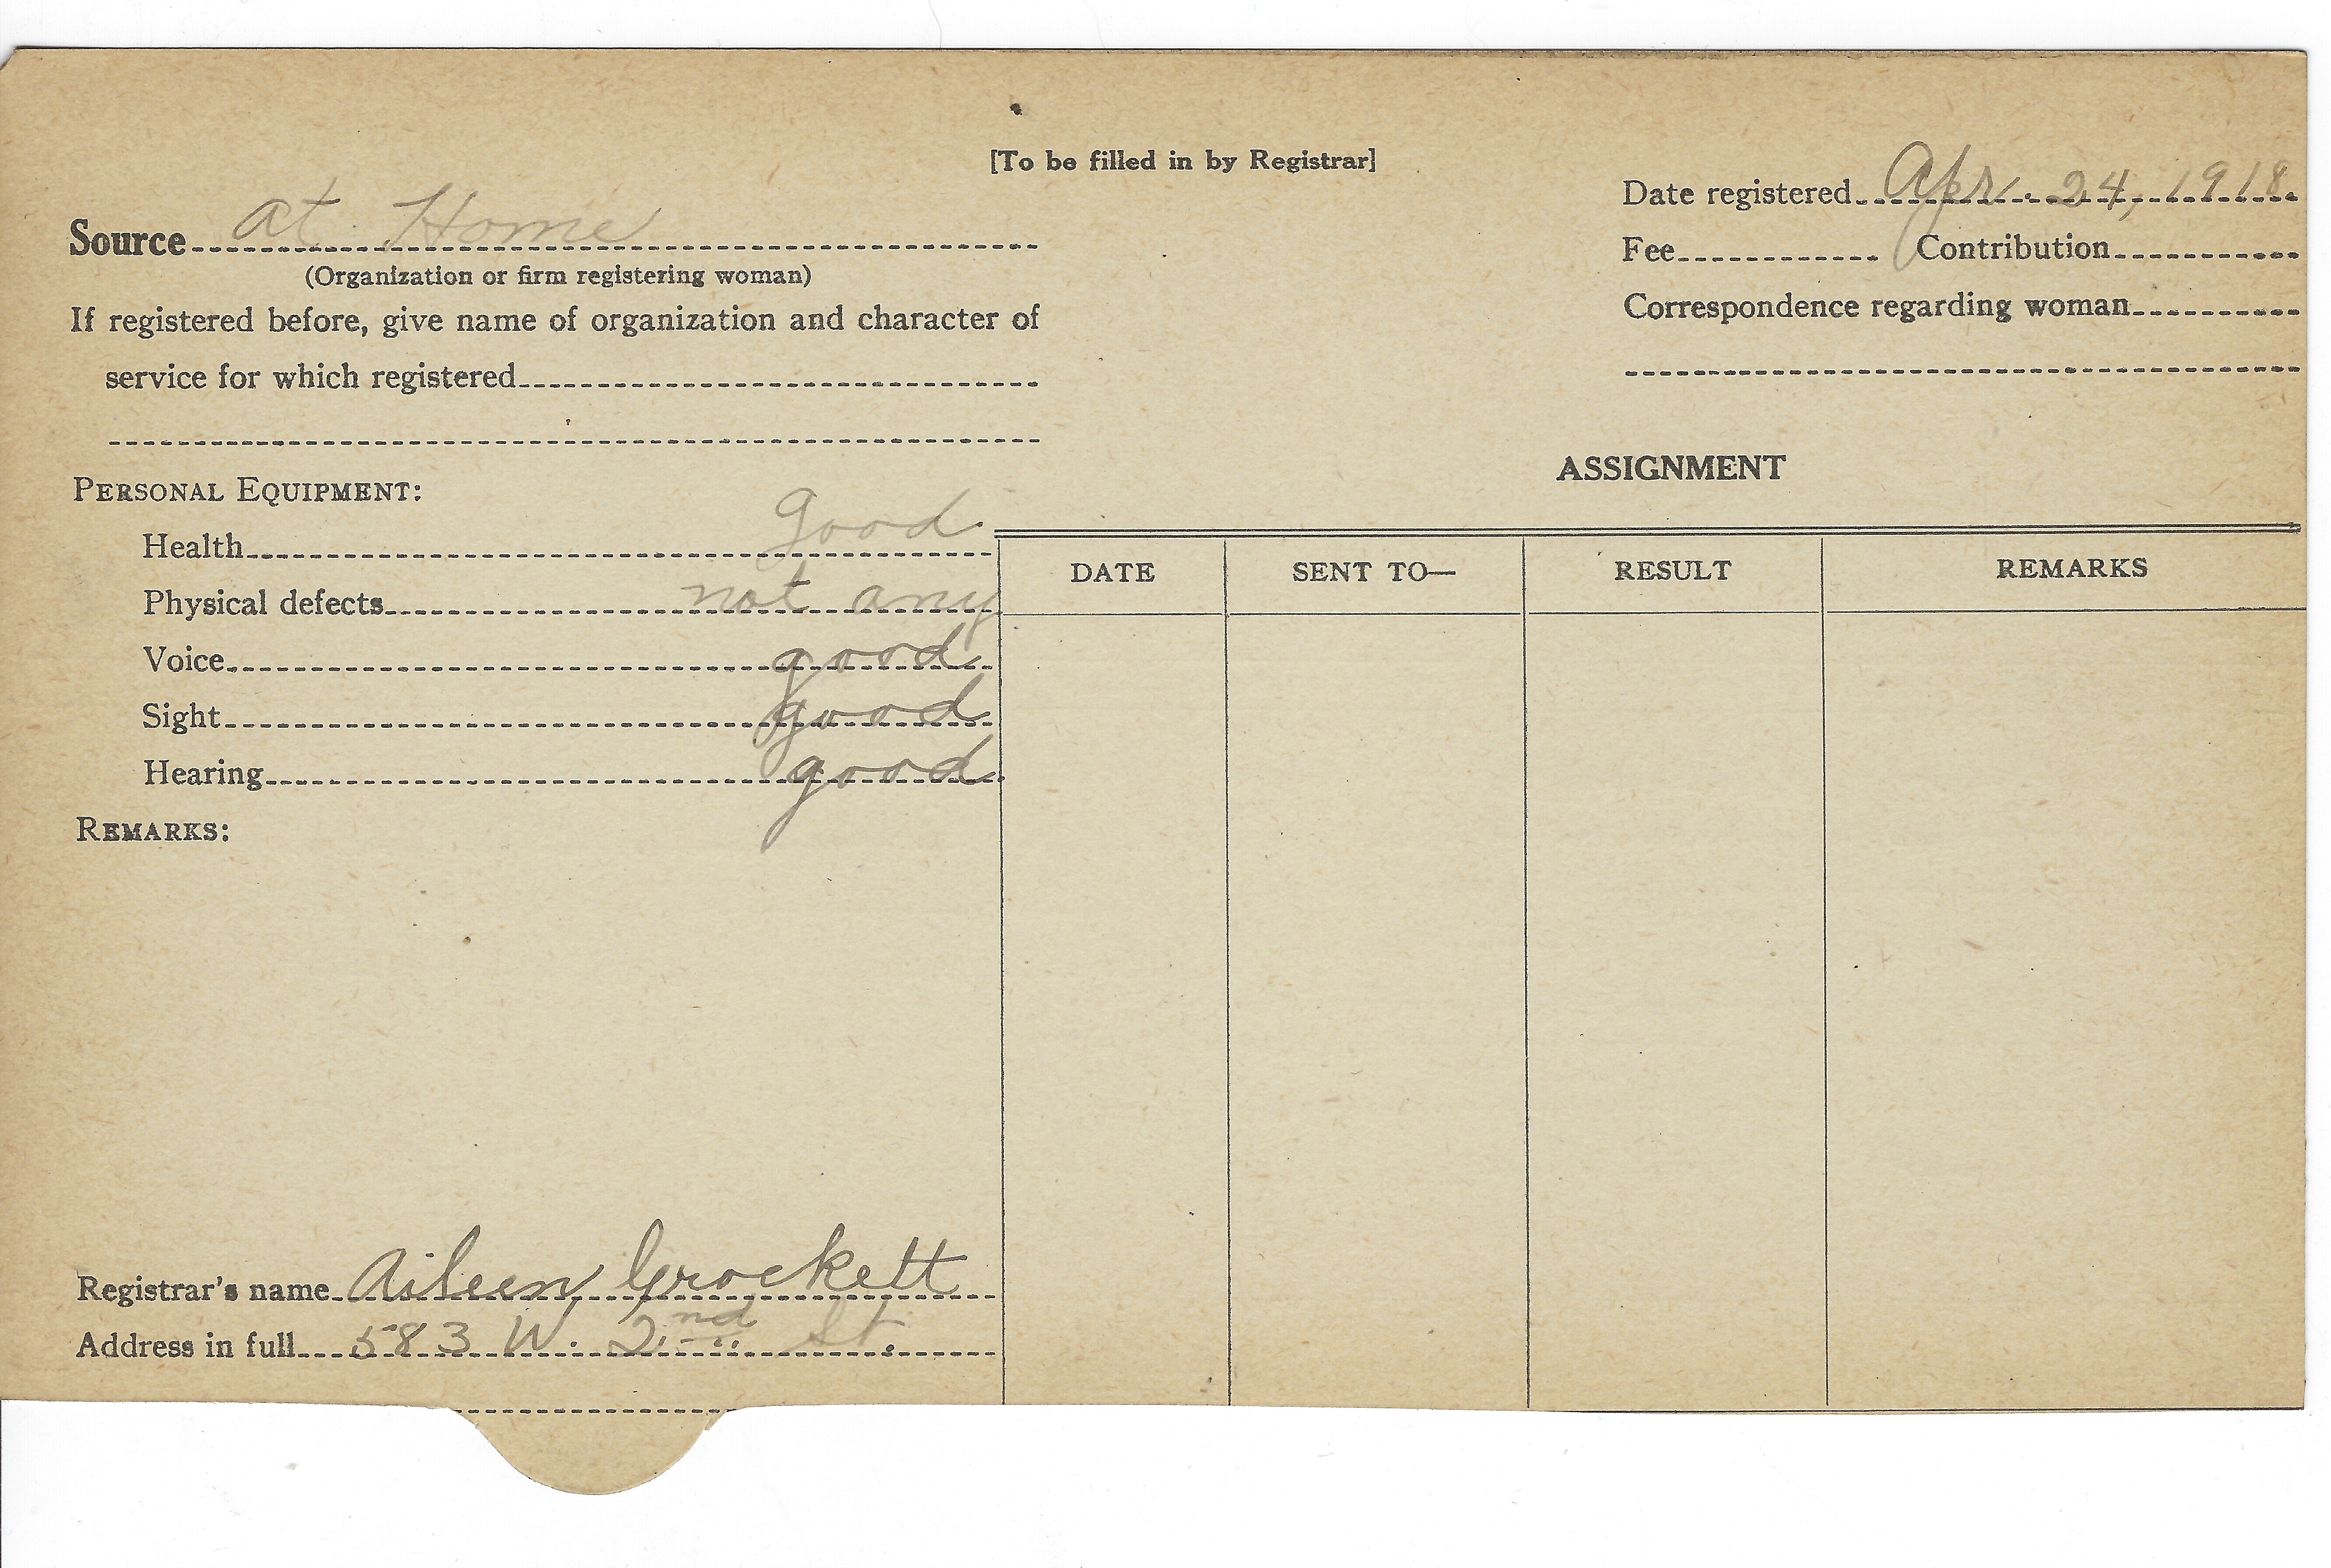 [To be filled in by Registrar]
Source at Home
(Organization or firm registering woman)
If registered before, give name of organization and character of
service for which registered
Date registered Apr. 24, 1918.
Fee Contribution
Correspondence regarding woman
PERSONAL EQUIPMENT:
Health good
Physical defects not any
Voice good
Sight good
Hearing good
REMARKS:
Registrar's name Aileen Crockett
Address in full 583 W. 2nd St.
ASSIGNMENT
DATE SENT TO— RESULT REMARKS